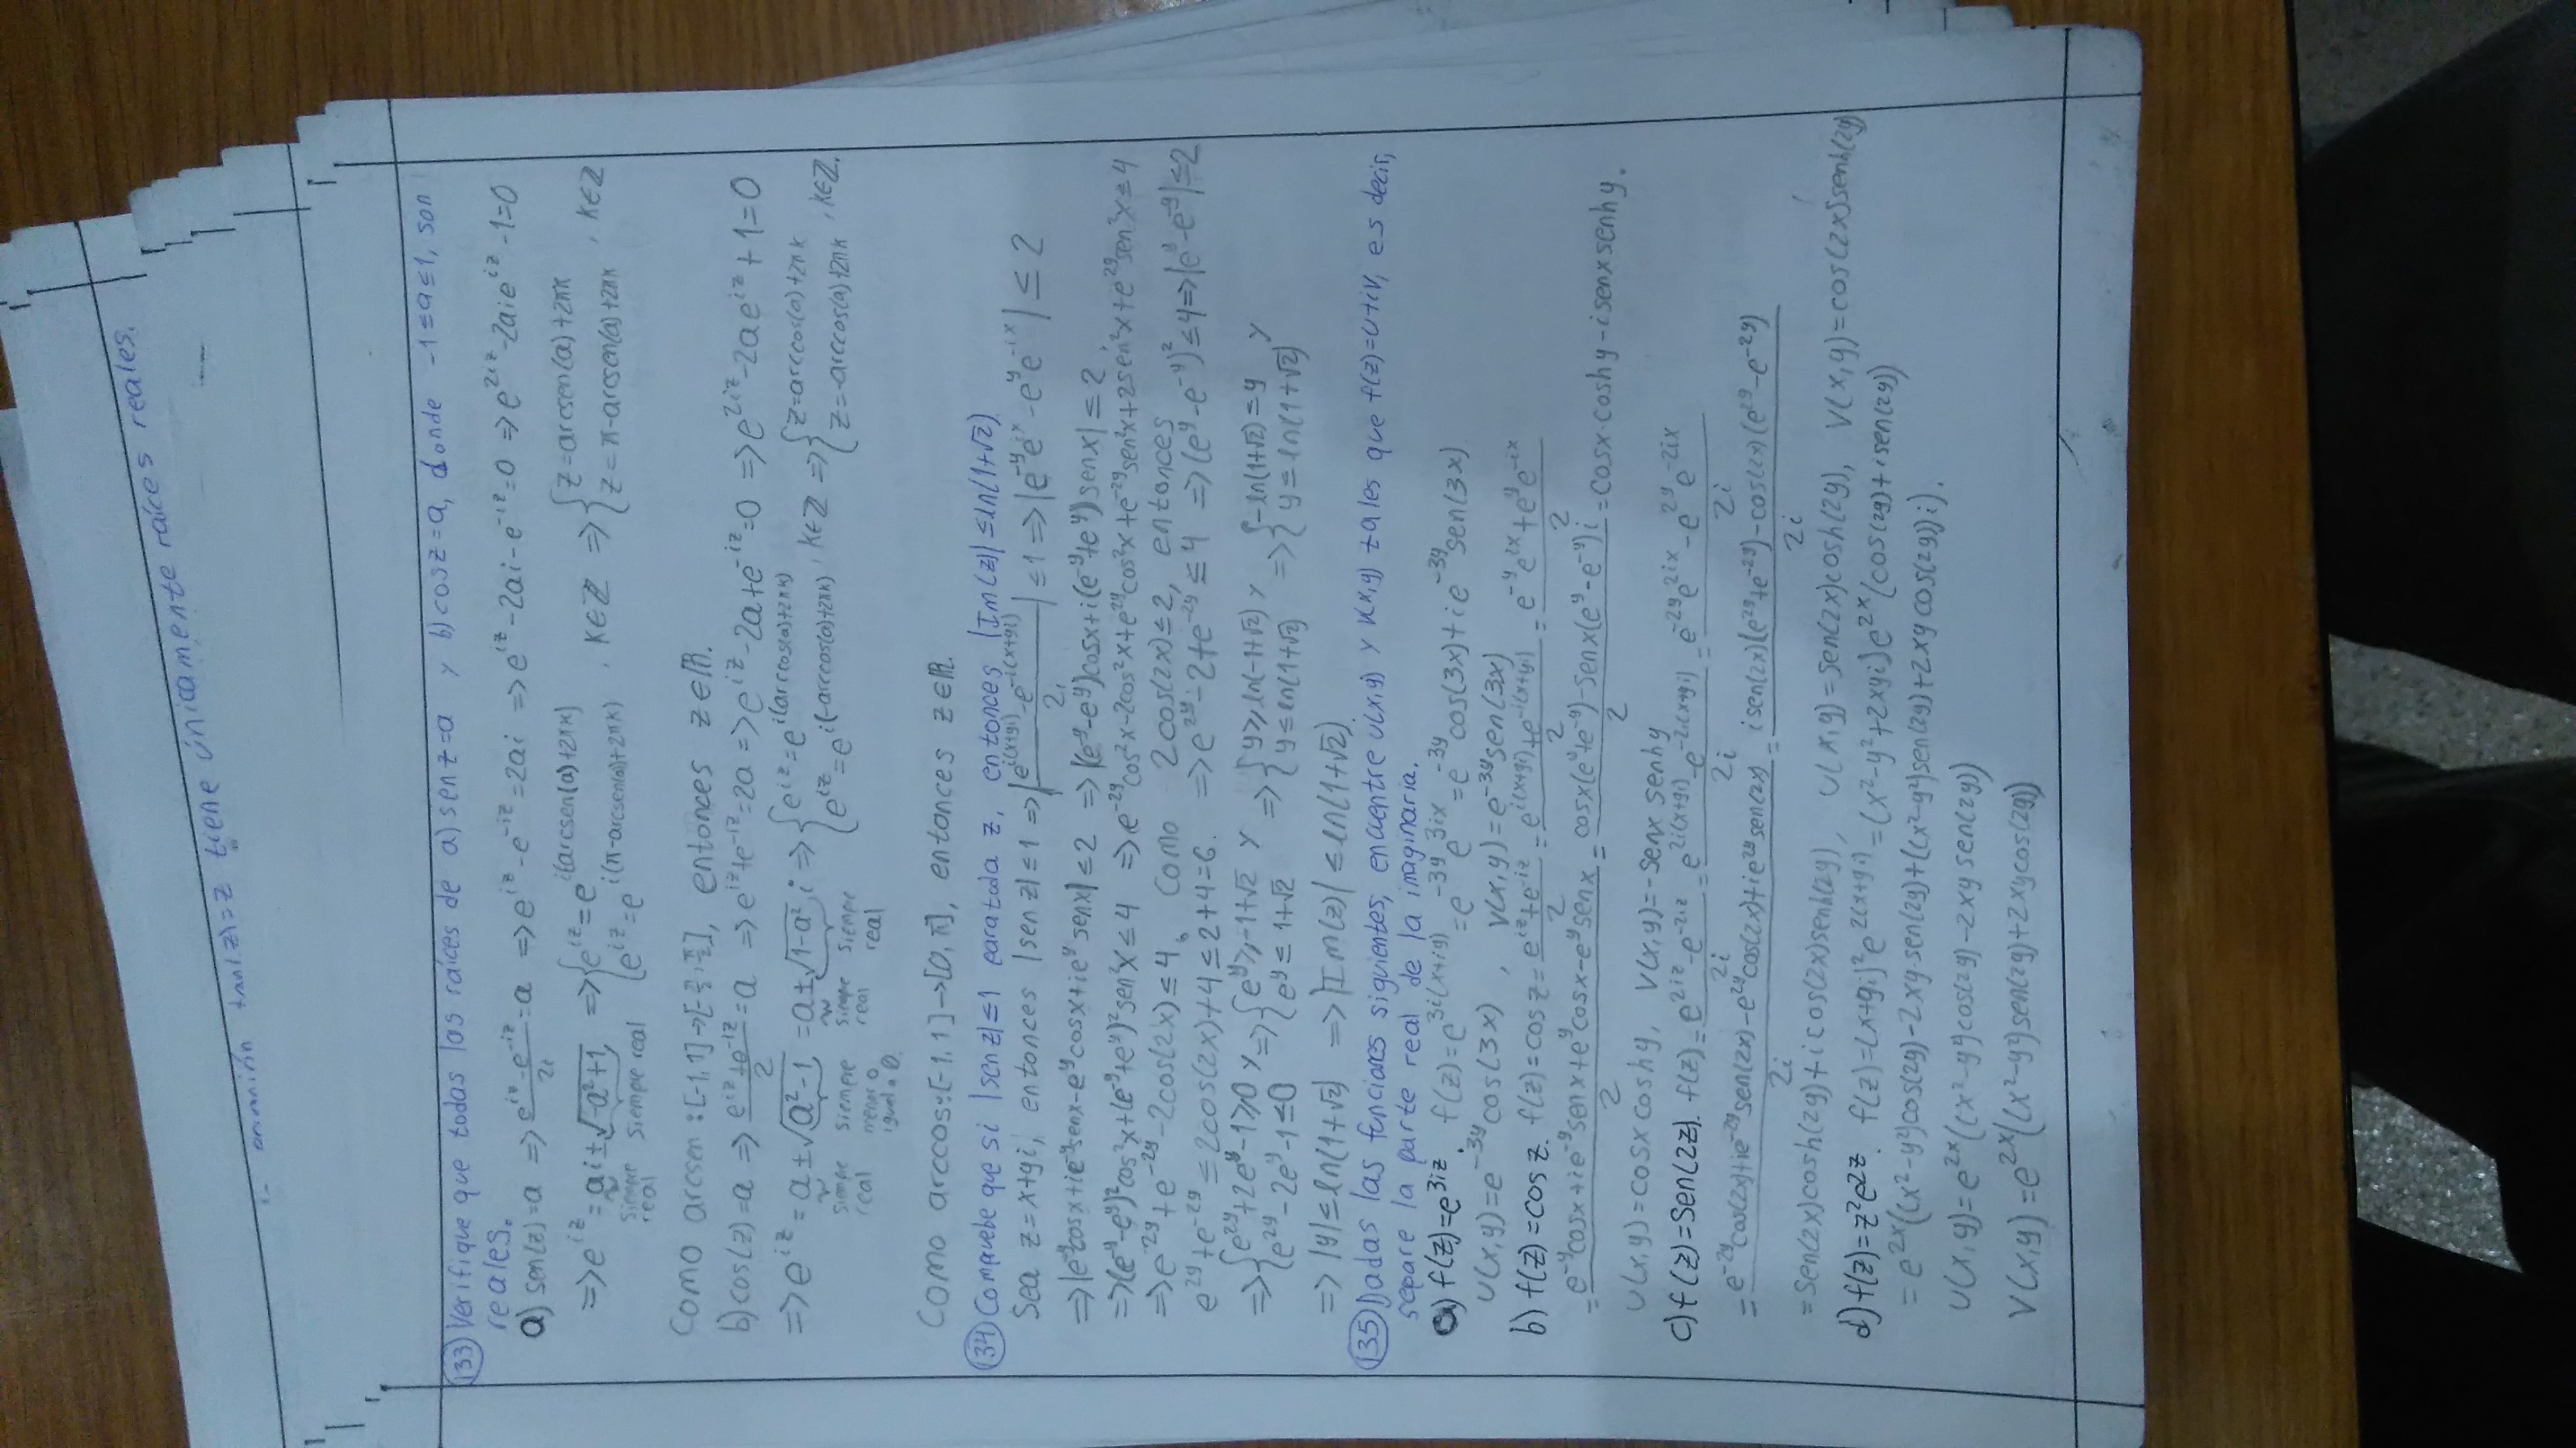 tan(z)=z tiene únicamente raíces reales.
(133) Verifique que todas las raíces de a) sen z=a y b) cos z=a, donde -1≤a≤1, son
reales.
a) sen(z)=a => (e^{iz}-e^{-iz})/2i=a => e^{iz}-e^{-iz}=2ai => e^{iz}-2ai-e^{-iz}=0 => e^{2iz}-2aie^{iz}-1=0
=> e^{iz}=ai±√(-a²+1) => { e^{iz}=e^{i(arcsen(a)+2πk)} ; e^{iz}=e^{i(π-arcsen(a)+2πk)} , k∈ℤ => { z=arcsen(a)+2πk ; z=π-arcsen(a)+2πk , k∈ℤ
siempre real siempre real
Como arcsen:[-1,1]→[-π/2,π/2], entonces z∈ℝ.
b) cos(z)=a => (e^{iz}+e^{-iz})/2=a => e^{iz}+e^{-iz}=2a => e^{iz}-2a+e^{-iz}=0 => e^{2iz}-2ae^{iz}+1=0
=> e^{iz}=a±√(a²-1)=a±√(1-a²) i => { e^{iz}=e^{i(arccos(a)+2πk)} ; e^{iz}=e^{i(-arccos(a)+2πk)} , k∈ℤ => { z=arccos(a)+2πk ; z=-arccos(a)+2πk , k∈ℤ.
siempre real siempre menos o igual a 0. siempre real siempre real
Como arccos:[-1,1]→[0,π], entonces z∈ℝ.
(134) Compruebe que si |sen z|≤1 para toda z, entonces |Im(z)|≤ln(1+√2)
Sea z=x+yi, entonces |sen z|≤1 => |(e^{i(x+yi)}-e^{-i(x+yi)})/2i|≤1 => |e^{-y}e^{ix}-e^{y}e^{-ix}|≤2
=> |e^{-y}cosx+ie^{-y}senx-e^{y}cosx+ie^{y}senx|≤2 => |(e^{-y}-e^{y})cosx+i(e^{-y}+e^{y})senx|≤2
=> (e^{-y}-e^{y})²cos²x+(e^{-y}+e^{y})²sen²x≤4 => e^{-2y}cos²x-2cos²x+e^{2y}cos²x+e^{-2y}sen²x+2sen²x+e^{2y}sen²x≤4
=> e^{2y}+e^{-2y}-2cos(2x)≤4. Como 2cos(2x)≤2, entonces
e^{2y}+e^{-2y}≤2cos(2x)+4≤2+4=6. => e^{2y}-2+e^{-2y}≤4 => (e^{y}-e^{-y})²≤4 => |e^{y}-e^{-y}|≤2
=> { e^{2y}+2e^{y}-1≥0 y ; e^{2y}-2e^{y}-1≤0 => { e^{y}≥-1+√2 y ; e^{y}≤1+√2 => { y≥ln(-1+√2) y ; y≤ln(1+√2) => { -ln(1+√2)≤y y ; y≤ln(1+√2)
=> |y|≤ln(1+√2) => |Im(z)|≤ln(1+√2)
(135) Dadas las funciones siguientes, encuentre u(x,y) y v(x,y) tales que f(z)=u+iv, es decir,
separe la parte real de la imaginaria.
a) f(z)=e^{3iz}. f(z)=e^{3i(x+iy)}=e^{-3y}e^{3ix}=e^{-3y}cos(3x)+ie^{-3y}sen(3x)
u(x,y)=e^{-3y}cos(3x), v(x,y)=e^{-3y}sen(3x)
b) f(z)=cos z. f(z)=cos z=(e^{iz}+e^{-iz})/2=(e^{i(x+yi)}+e^{-i(x+yi)})/2=(e^{-y}e^{ix}+e^{y}e^{-ix})/2
=(e^{-y}cosx+ie^{-y}senx+e^{y}cosx-e^{y}senx)/2=(cosx(e^{y}+e^{-y})-senx(e^{y}-e^{-y})i)/2=cosx·coshy-isenxsenhy.
u(x,y)=cosxcoshy, v(x,y)=-senx senhy
c) f(z)=Sen(2z). f(z)=(e^{2iz}-e^{-2iz})/2i=(e^{2i(x+yi)}-e^{-2i(x+yi)})/2i=(e^{-2y}e^{2ix}-e^{2y}e^{-2ix})/2i
=(e^{-2y}cos(2x)+ie^{-2y}sen(2x)-e^{2y}cos(2x)+ie^{2y}sen(2x))/2i=(isen(2x)(e^{2y}+e^{-2y})-cos(2x)(e^{2y}-e^{-2y}))/2i
=Sen(2x)cosh(2y)+icos(2x)senh(2y), u(x,y)=sen(2x)cosh(2y), v(x,y)=cos(2x)senh(2y)
d) f(z)=z²e^{2z}. f(z)=(x+yi)²e^{2(x+yi)}=(x²-y²+2xyi)e^{2x}(cos(2y)+isen(2y))
=e^{2x}((x²-y²)cos(2y)-2xy·sen(2y)+((x²-y²)sen(2y)+2xycos(2y))i).
u(x,y)=e^{2x}((x²-y²)cos(2y)-2xy sen(2y))
v(x,y)=e^{2x}((x²-y²)sen(2y)+2xycos(2y))